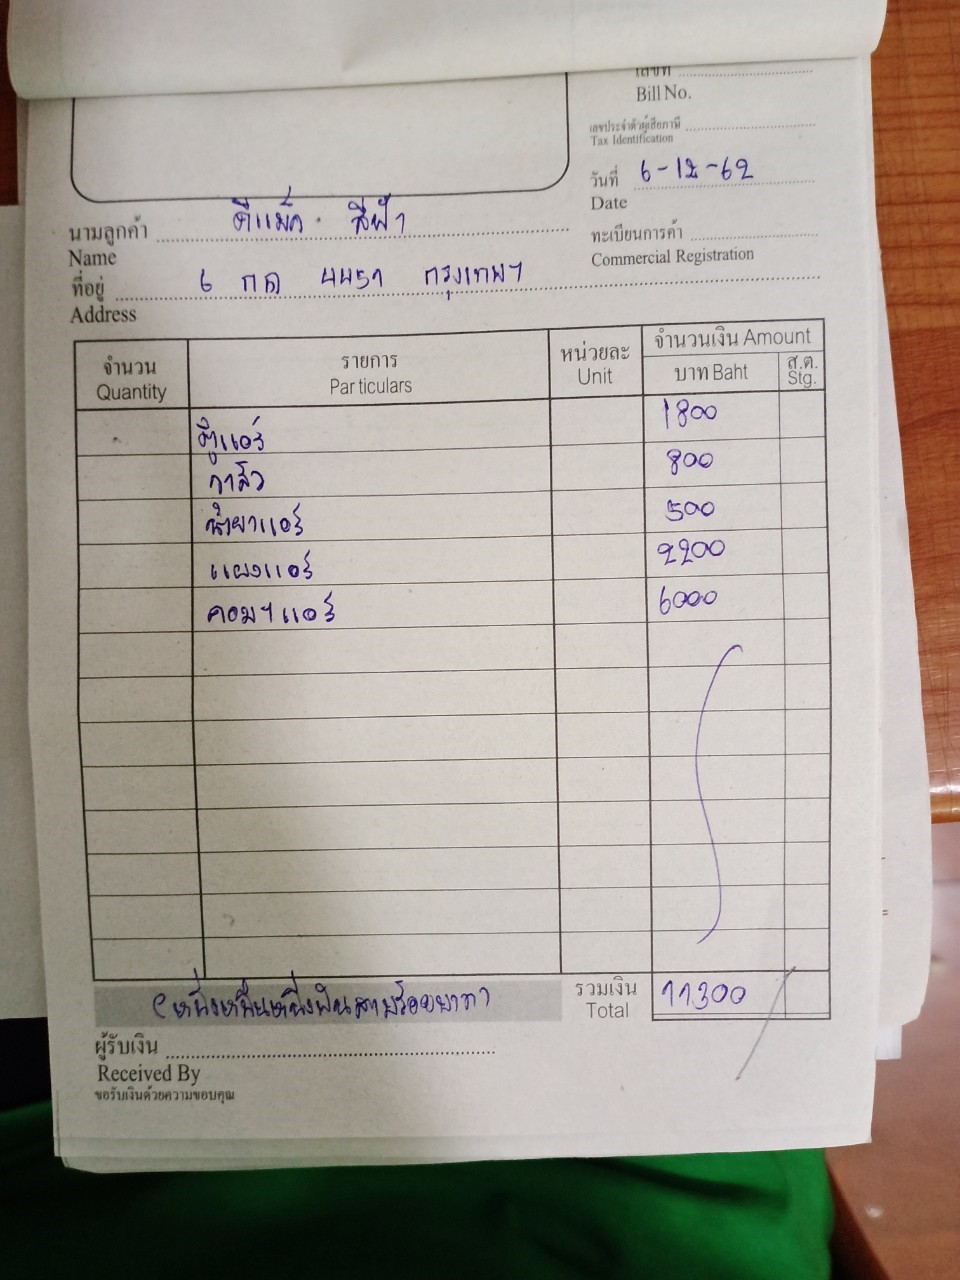 เลขที่
Bill No.
เลขประจำตัวผู้เสียภาษี
Tax Identification
วันที่ 6-12-62
Date
นามลูกค้า ดีแม็ก สีฟ้า
Name
ทะเบียนการค้า
Commercial Registration
ที่อยู่ 6 กฎ 4459 กรุงเทพฯ
Address
จำนวน
Quantity
รายการ
Particulars
หน่วยละ
Unit
จำนวนเงิน Amount
บาท Baht
ส.ต.
Stg.
ตู้แอร์ 1800
วาล์ว 800
น้ำยาแอร์ 500
แผงแอร์ 2200
คอมฯแอร์ 6000
(หนึ่งหมื่นหนึ่งพันสามร้อยบาท)
รวมเงิน
Total
11300
ผู้รับเงิน
Received By
ขอรับเงินด้วยความขอบคุณ